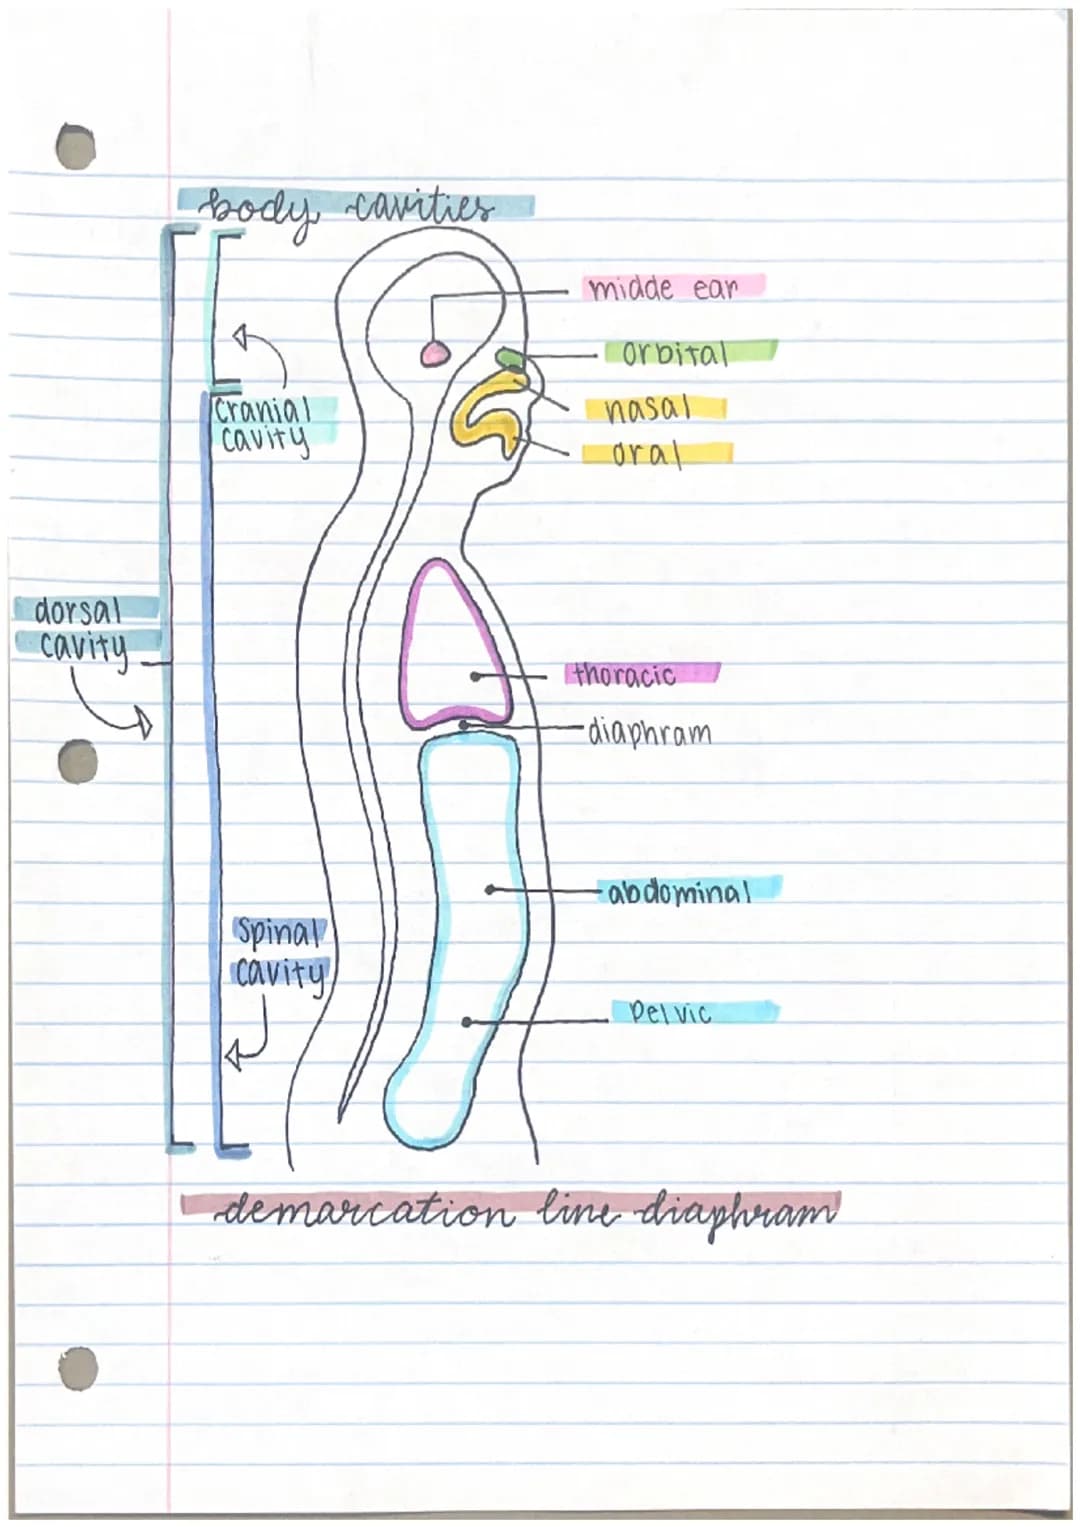 body cavities
midde ear
orbital
cranial
cavity
nasal
oral
dorsal
cavity
thoracic
diaphram
abdominal
spinal
cavity
Pelvic
demarcation line diaphram